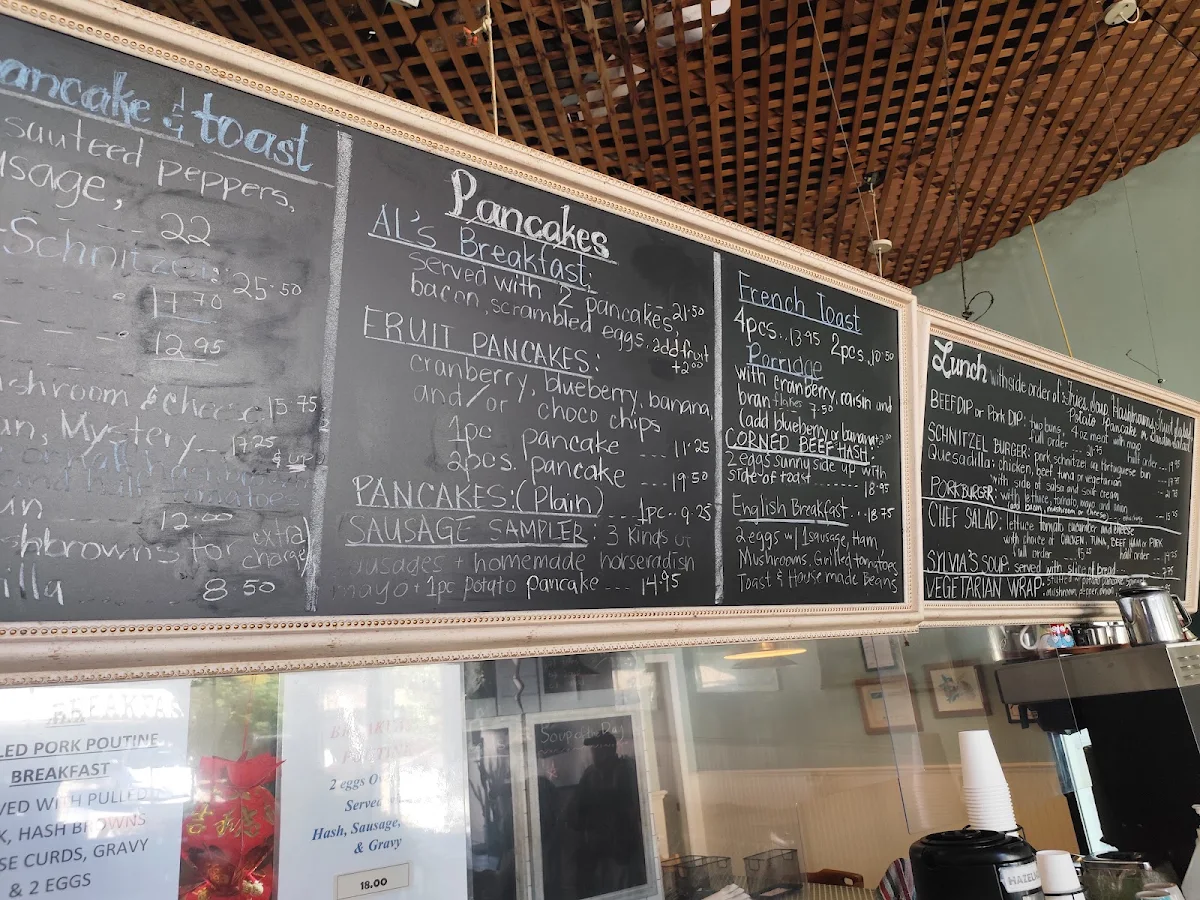 ancake & toast
sauteed peppers,
usage, --- 22
-Schnitzel: 25.50
17.70
12.95
shroom & cheese 15.75
an, Mystery --- 17.25
& up
un
12.00
hbrowns for extra
charge
illa
8.50
Pancakes
AL'S Breakfast:
served with 2 pancakes, 21.50
bacon, scrambled eggs, add fruit
+2.00
FRUIT PANCAKES:
cranberry, blueberry, banana,
and/or choco chips
1pc pancake ---- 11.25
2pcs. pancake ---- 19.50
PANCAKES: (Plain) ---- 1pc-- 9.25
SAUSAGE SAMPLER: 3 kinds of
sausages + homemade horseradish
mayo + 1pc potato pancake --- 14.95
French Toast
4pcs.. 13.95 2pcs.. 10.50
Porridge
with cranberry, raisin and
bran flakes 7.50
(add blueberry or banana +2.00
CORNED BEEF HASH:
2 eggs sunny side up with
side of toast ........ 18.95
English Breakfast ... 18.75
2 eggs w/ 1 sausage, Ham,
Mushrooms, Grilled tomatoes,
Toast & House made Beans
Lunch with side order of: Fries, Soup, Hashbrowns,
Potato Pancake
BEEF DIP or Pork DIP: two buns, 4 oz meat with mayo
full order half order
SCHNITZEL BURGER: pork schnitzel on Portuguese bun
Quesadilla: chicken, beef, tuna or vegetarian
with side of salsa and sour cream
PORK BURGER: with lettuce, tomato, mayo and onion
CHEF SALAD: lettuce tomato cucumber and cheese
with choice of CHICKEN, TUNA, BEEF, HAM or PORK
full order half order
SYLVIA'S SOUP: served with slice of bread
VEGETARIAN WRAP:
LED PORK POUTINE
BREAKFAST
VED WITH PULLED
K, HASH BROWNS
SE CURDS, GRAVY
& 2 EGGS
BREAKFAST
POUTINE
2 eggs
Served
Hash, Sausage,
& Gravy
18.00
Soup of the Day
HAZEL